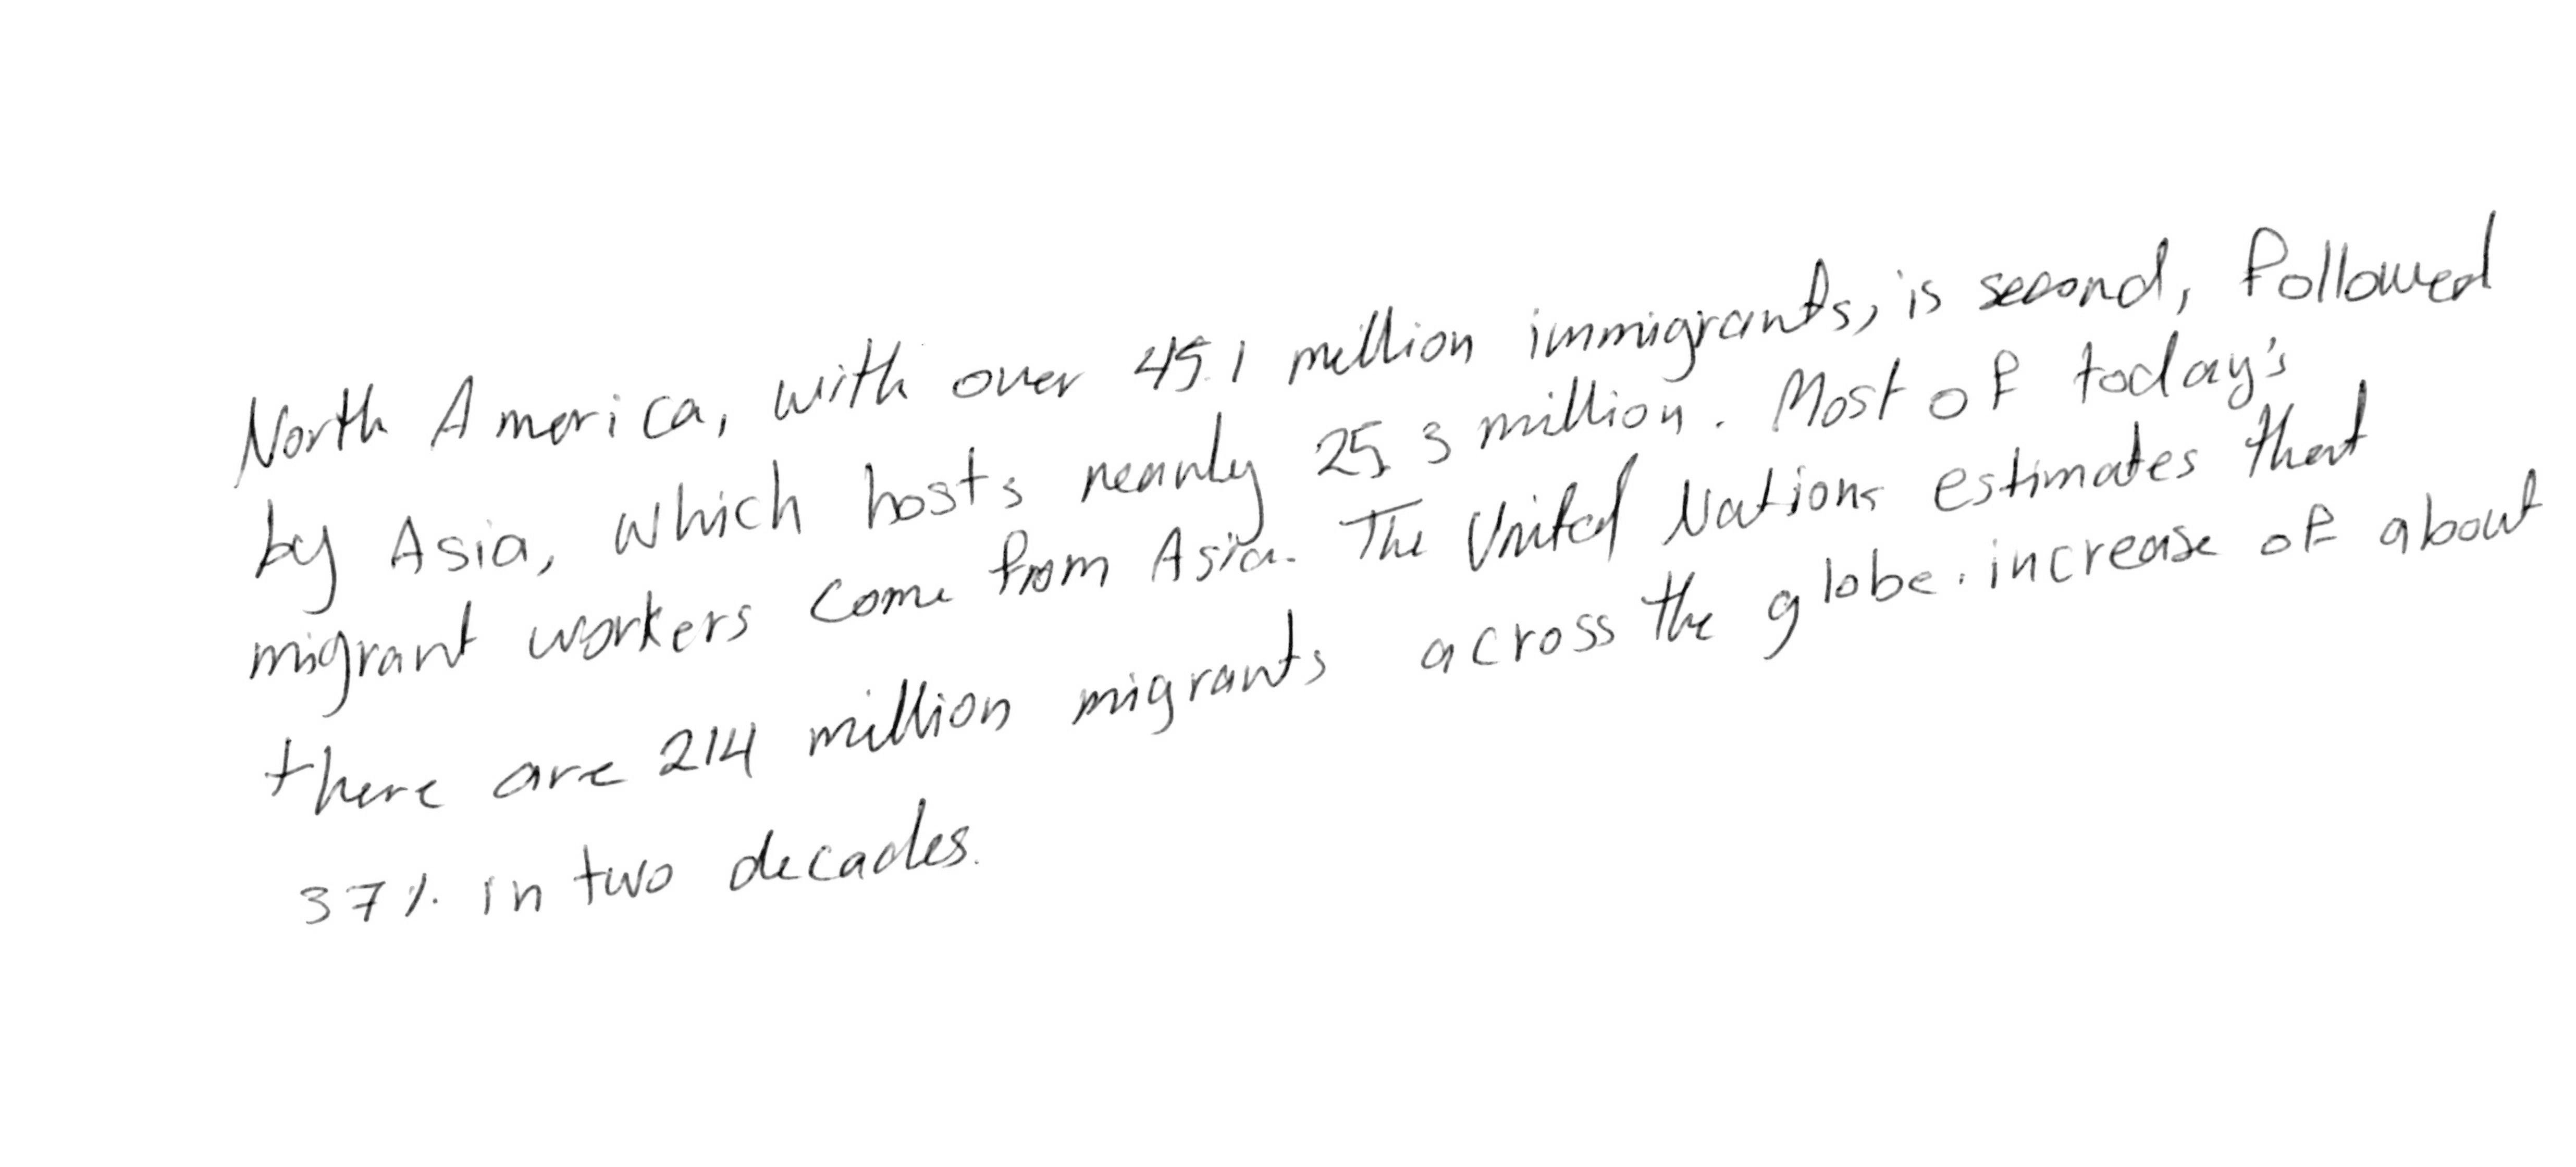 North America, with over 45.1 million immigrants, is second, followed
by Asia, which hosts nearly 25.3 million. Most of today's
migrant workers come from Asia. The United Nations estimates that
there are 214 million migrants across the globe. increase of about
37% in two decades.